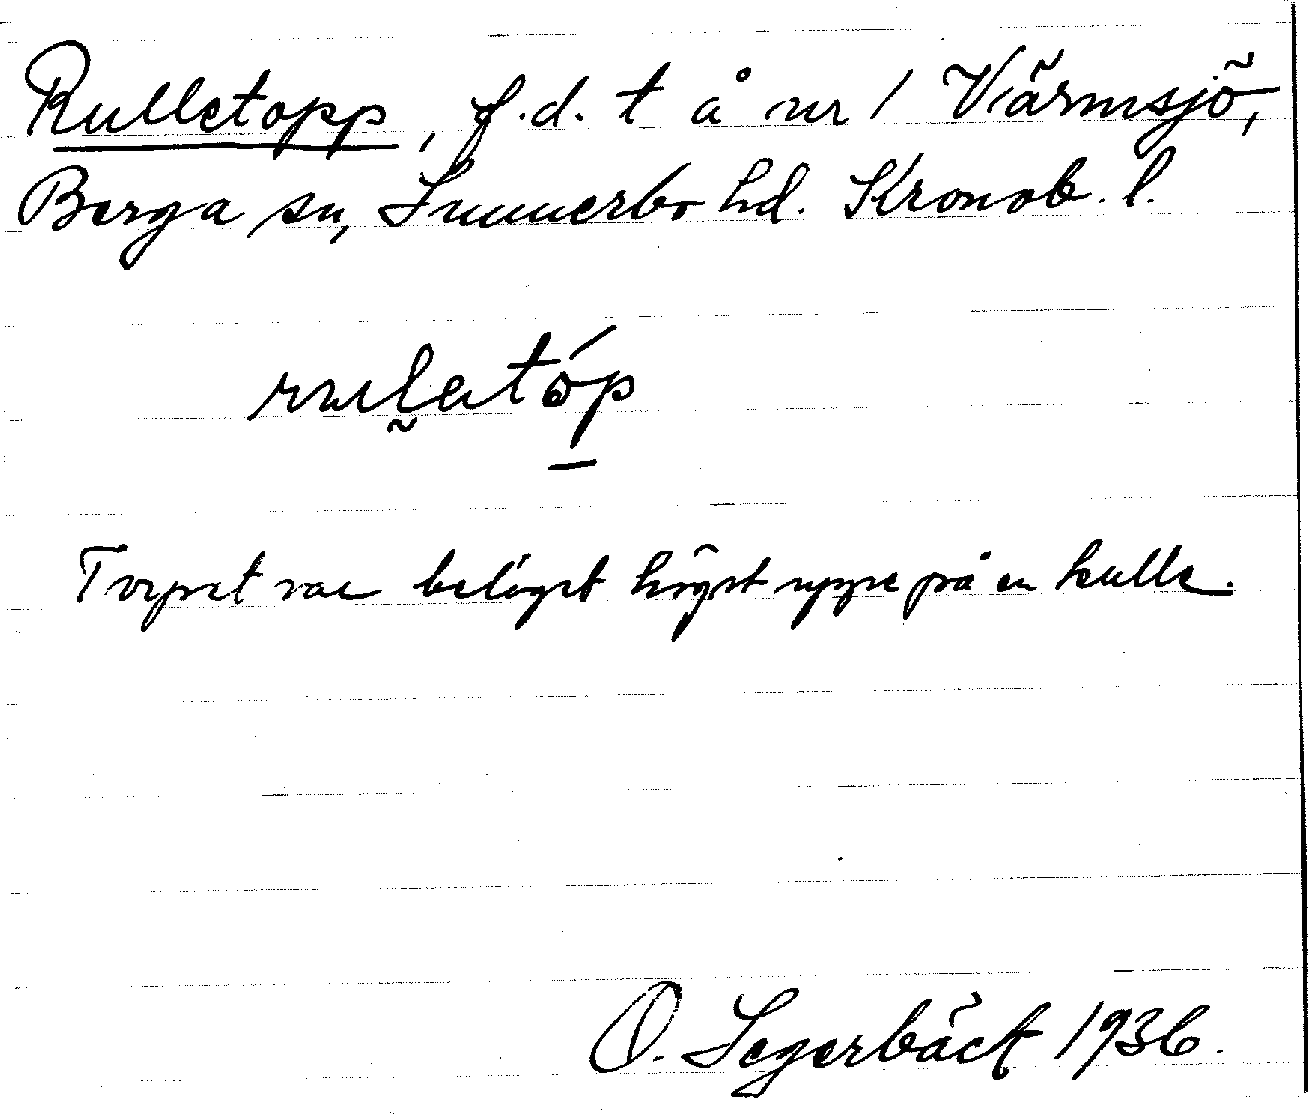 Rulletopp, f.d. t å nr 1 Värmsjö,
Berga sn, Sunnerbo hd. Kronob. l.
Torpet var beläget högst uppe på en kulle.
O. Segerbäck 1936.